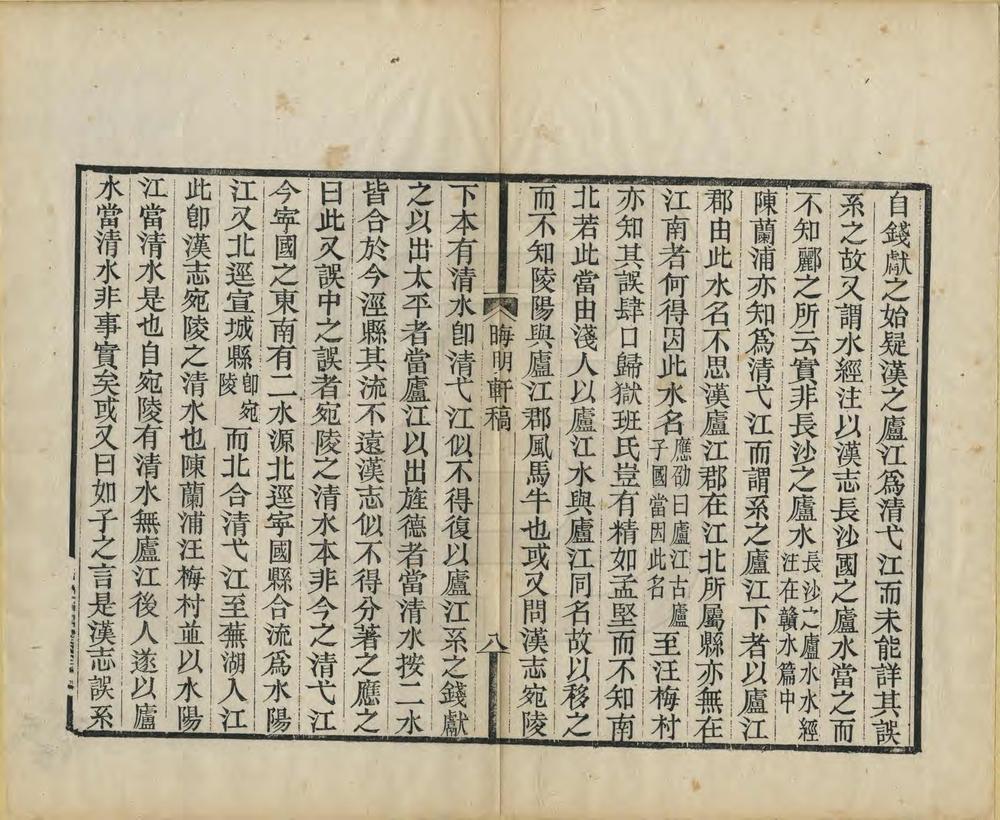 自錢獻之始疑漢之廬江爲清弋江而未能詳其誤
系之故又謂水經注以漢志長沙國之廬水當之而
不知酈之所云實非長沙之廬水長沙之廬水水經注在贛水篇中
陳蘭浦亦知爲清弋江而謂系之廬江下者以廬江
郡由此水名不思漢廬江郡在江北所屬縣亦無在
江南者何得因此水名應劭曰廬江古廬子國當因此名至汪梅村
亦知其誤肆口歸獄班氏豈有精如孟堅而不知南
北若此當由淺人以廬江水與廬江同名故以移之
而不知陵陽與廬江郡風馬牛也或又問漢志宛陵
晦明軒稿
八
下本有清水卽清弋江似不得復以廬江系之錢獻
之以出太平者當廬江以出旌德者當清水按二水
皆合於今涇縣其流不遠漢志似不得分著之應之
曰此又誤中之誤者宛陵之清水本非今之清弋江
今寧國之東南有二水源北逕寧國縣合流爲水陽
江又北逕宣城縣卽宛陵而北合清弋江至蕪湖入江
此卽漢志宛陵之清水也陳蘭浦汪梅村並以水陽
江當清水是也自宛陵有清水無廬江後人遂以廬
水當清水非事實矣或又曰如子之言是漢志誤系